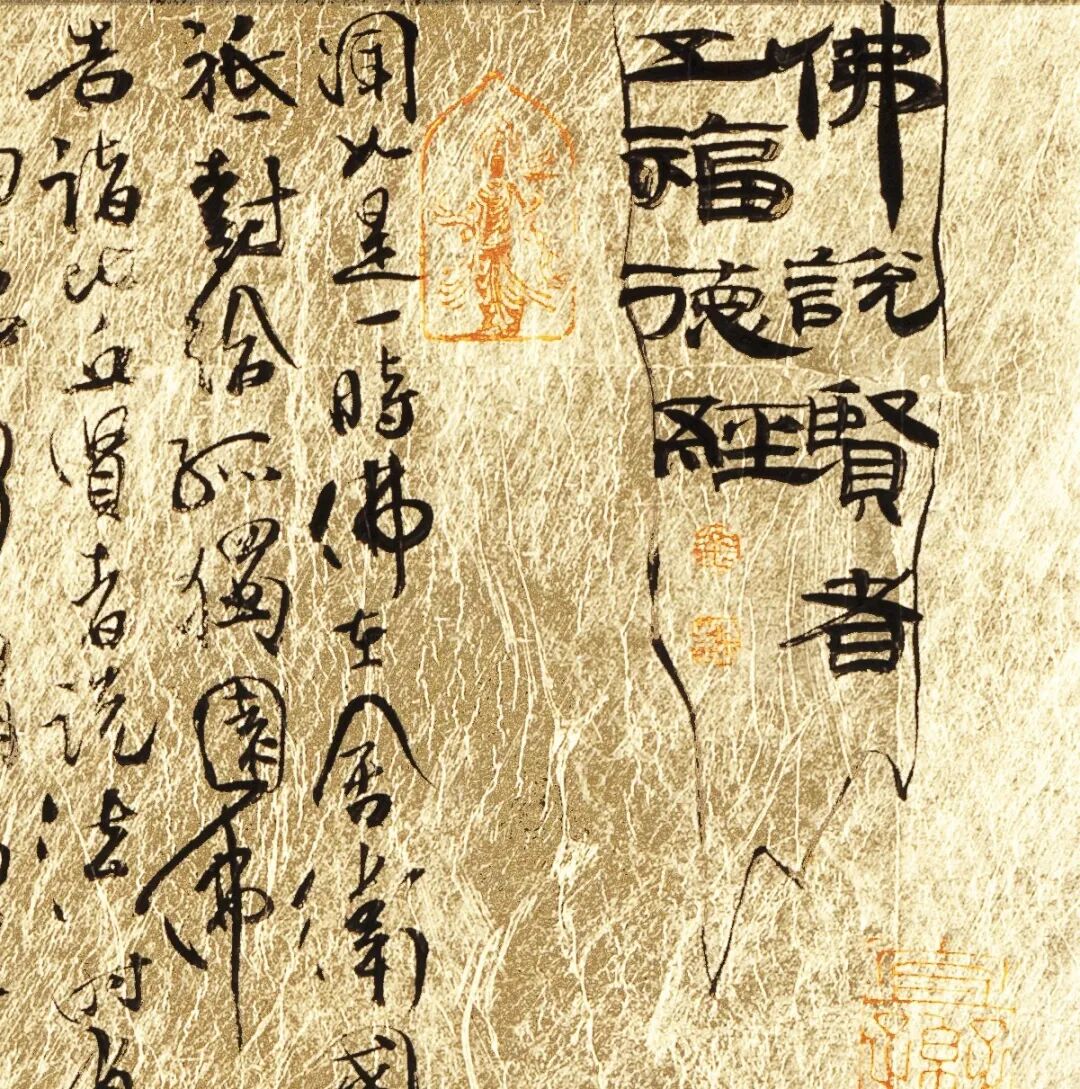 佛說賢者
五福德經
聞如是一時佛在舍衛國
祇樹給孤獨園佛
告諸比丘賢者說法時有